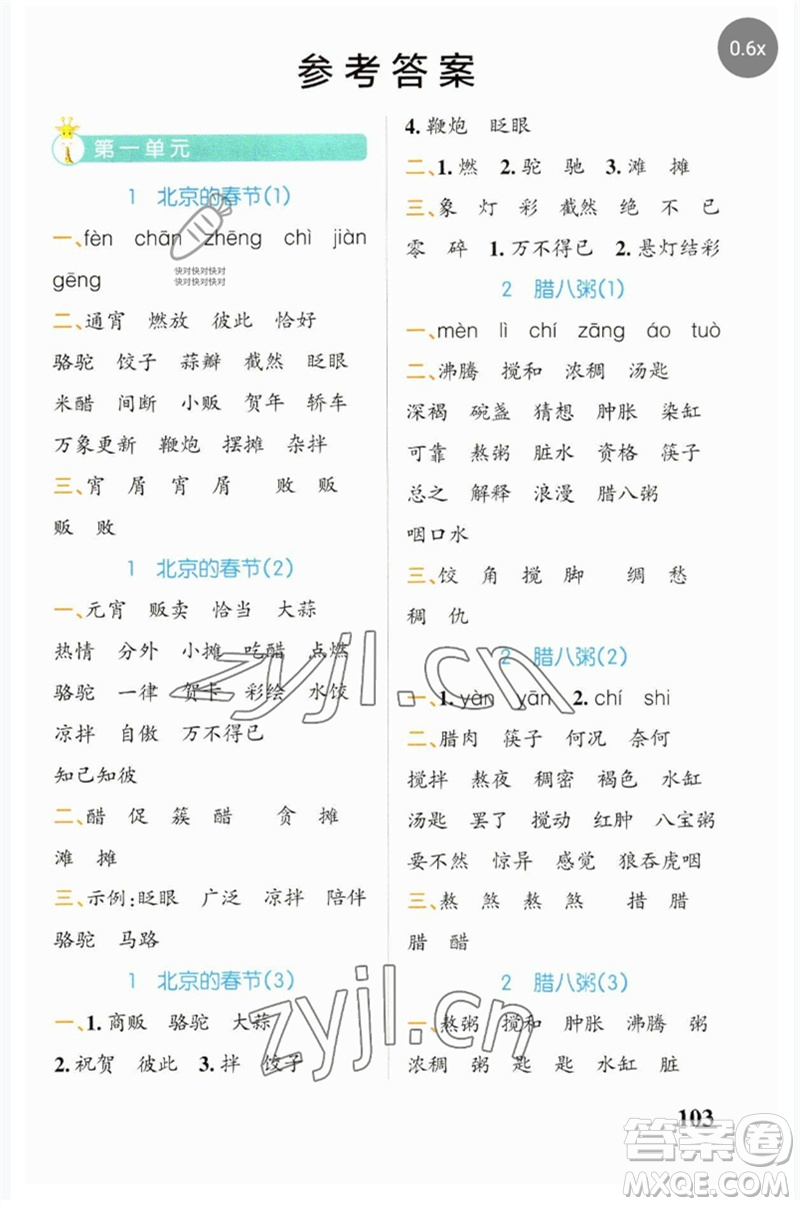 0.6x
参考答案
第一单元
1 北京的春节(1)
一、fèn chān zhēng chì jiàn
gēng
快对快对快对
快对快对快对
二、通宵 燃放 彼此 恰好
骆驼 饺子 蒜瓣 截然 眨眼
米醋 间断 小贩 贺年 轿车
万象更新 鞭炮 摆摊 杂拌
三、宵 屑 宵 屑 败 贩
贩 败
1 北京的春节(2)
一、元宵 贩卖 恰当 大蒜
热情 分外 小摊 吃醋 点燃
骆驼 一律 贺卡 彩绘 水饺
凉拌 自傲 万不得已
知己知彼
二、醋 促 簇 醋 贪 摊
滩 摊
三、示例:眨眼 广泛 凉拌 陪伴
骆驼 马路
1 北京的春节(3)
一、1. 商贩 骆驼 大蒜
2. 祝贺 彼此 3. 拌 饺子
4. 鞭炮 眨眼
二、1. 燃 2. 驼 驰 3. 滩 摊
三、象 灯 彩 截然 绝 不 已
零 碎 1. 万不得已 2. 悬灯结彩
2 腊八粥(1)
一、mèn lì chí zāng áo tuò
二、沸腾 搅和 浓稠 汤匙
深褐 碗盏 猜想 肿胀 染缸
可靠 熬粥 脏水 资格 筷子
总之 解释 浪漫 腊八粥
咽口水
三、饺 角 搅 脚 绸 愁
稠 仇
2 腊八粥(2)
一、1. yàn yān 2. chí shi
二、腊肉 筷子 何况 奈何
搅拌 熬夜 稠密 褐色 水缸
汤匙 罢了 搅动 红肿 八宝粥
要不然 惊异 感觉 狼吞虎咽
三、熬 煞 熬 煞 措 腊
腊 醋
2 腊八粥(3)
一、熬粥 搅和 肿胀 沸腾 粥
浓稠 粥 匙 匙 水缸 脏
103
zyjl.cn
zyjl.cn
答案圈
MXQE.COM